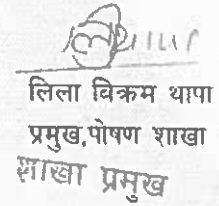 लिला विक्रम थापा
प्रमुख,पोषण शाखा
शाखा प्रमुख